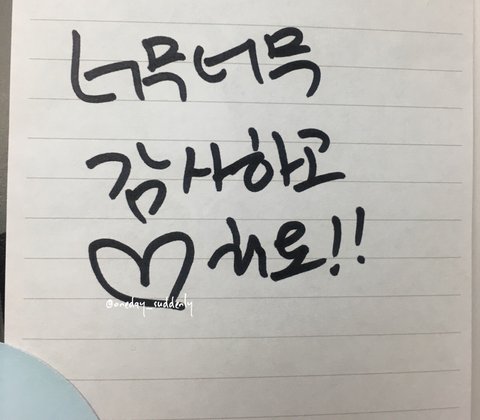 너무너무
감사하고
♡해요!!
@oneday_suddenly